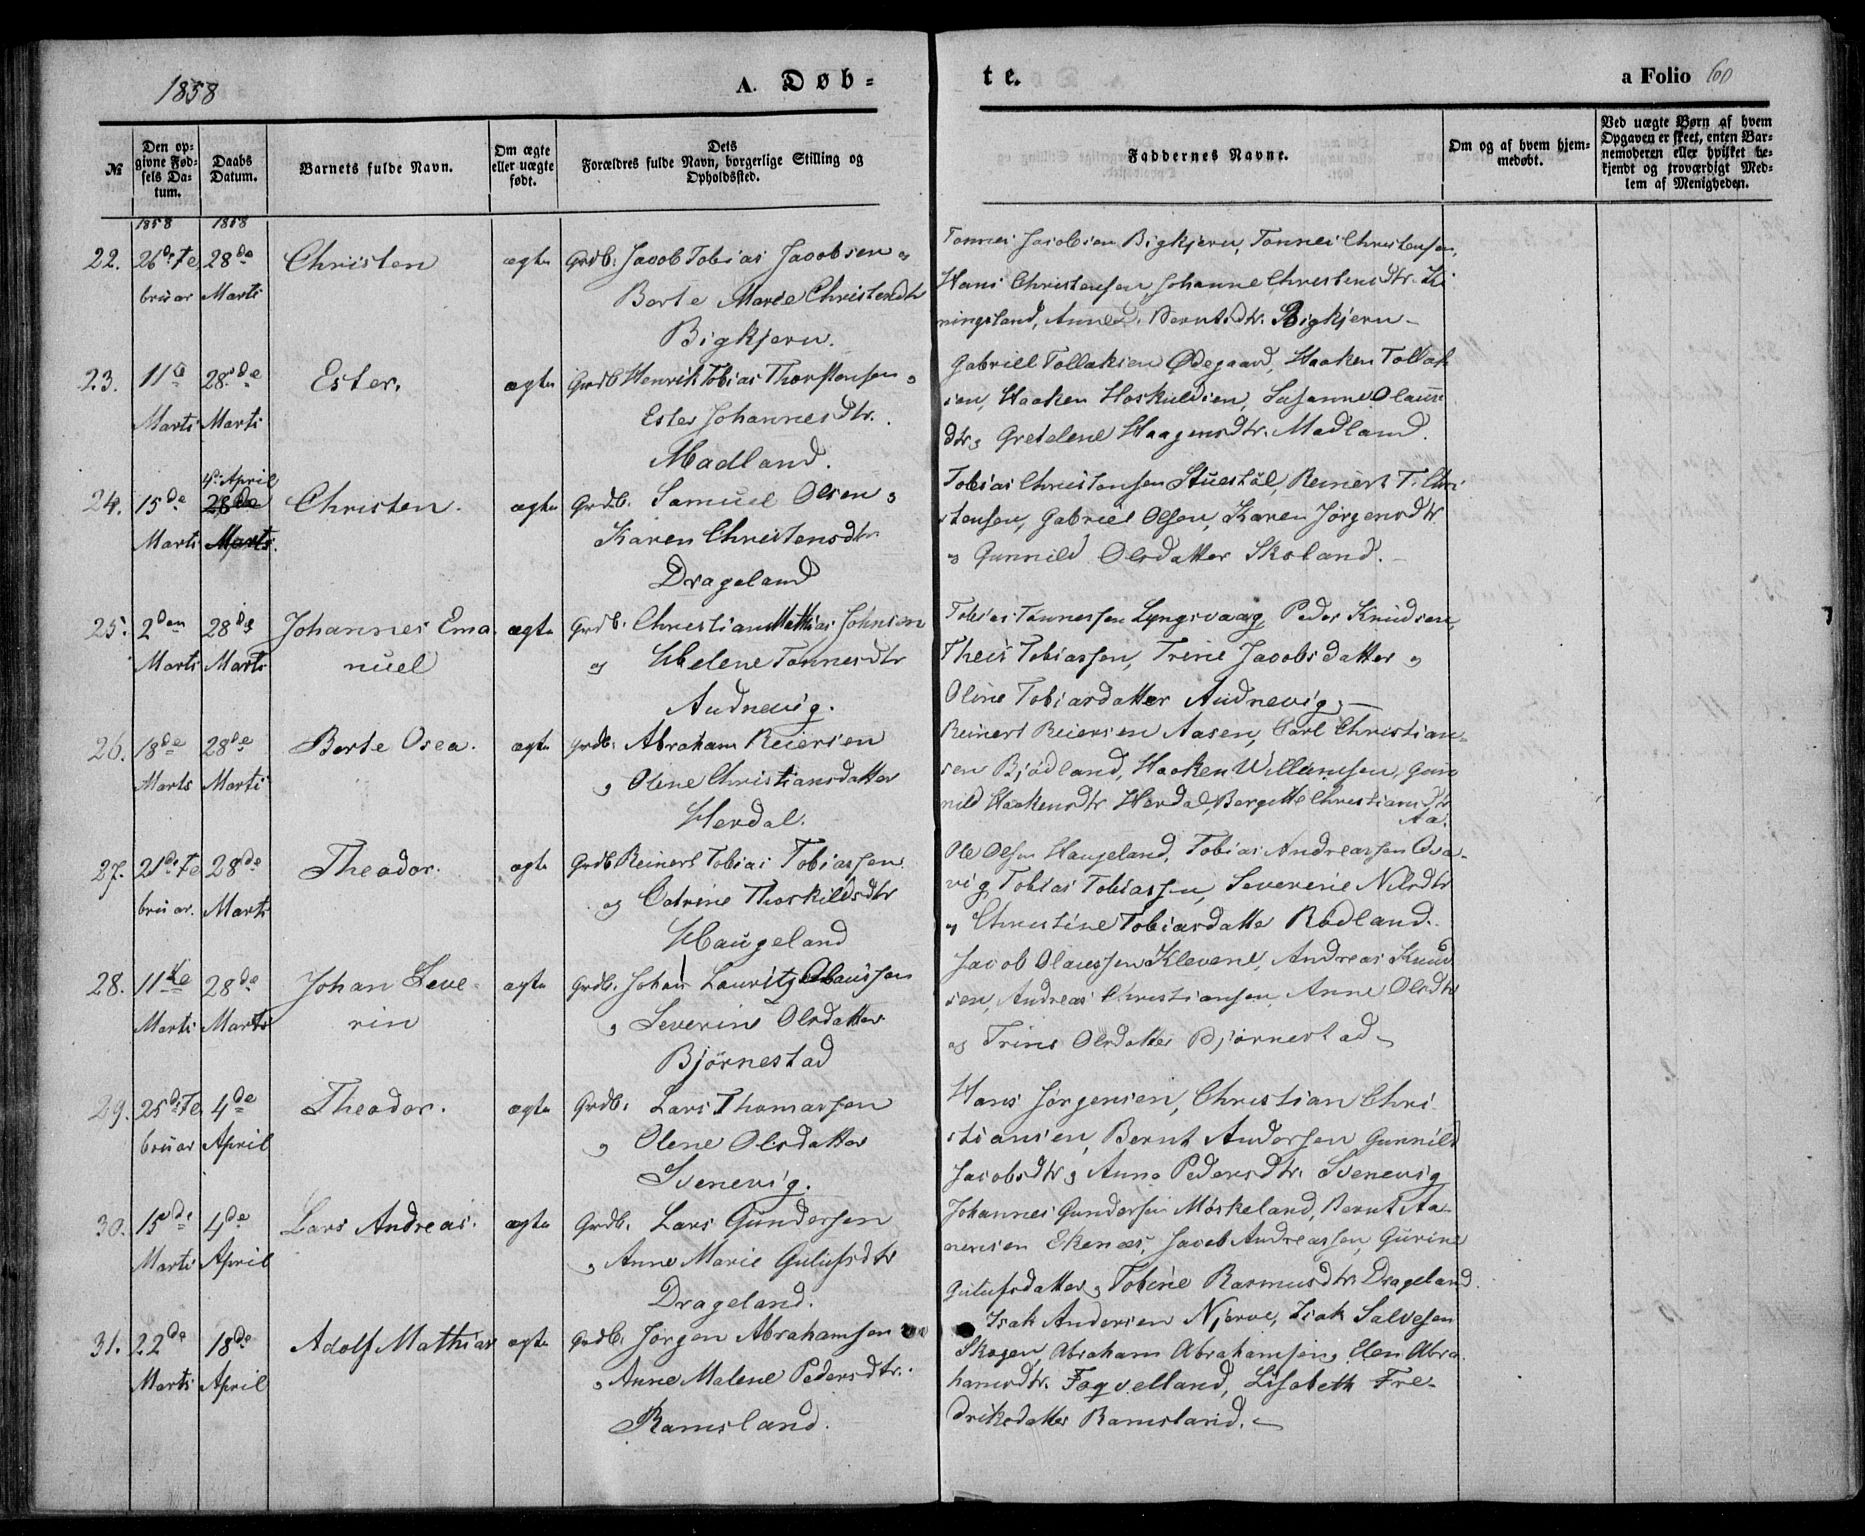 1858
A. Døb=
te.
a Folio 60
№
Den op-
givne Fød-
sels Da-
tum.
Daabs
Datum.
Barnets fulde Navn.
Om ægte
eller uægte
født.
Dets
Forældres fulde Navn, borgerlige Stilling og
Opholdssted.
Faddernes Navne.
Om og af hvem hjem-
medøbt.
Ved uægte Børn af hvem
Opgaven er skeet, enten Bar-
nemoderen eller hvilket be-
kjendt og troværdigt Med-
lem af Menigheden.
1858 1858
22. 26de Fe 28de Christen ægte Grdb. Jacob Tobias Jacobsen og
bruar Marts Berte Marie Christendtr
Bigkjern.
Tønnes Jacobsen Bigkjern, Tønnes Christensen,
Hans Christensen, Johanne Christensdtr. Ki
ningsland, Anne Berntsdtr. Bigkjern
23. 11te 28de Ester. ægte Grdb Henrik Tobias Thorstensen og
Marts Marts Ester Johannesdtr.
Madland.
Gabriel Tollaksen Ødegaard, Haaken Tollak
sen, Haaken Hoskuldsen, Susanne Olaus
dtr og Gretelene Haagensdtr. Madland.
4de April
24. 15de 28de Christen. ægte Grdb. Samuel Olsen og
Marts Marts. Karen Christensdtr
Drageland
Tobias Christensen Stuestøl, Reinert T. Chri
stensen, Gabriel Olsen, Karen Jørgensdtr
og Gunnild Olsdatter Skoland.
25. 2den 28de Johannes Ema ægte Grdb. Christian Mathias Johnsen
Marts Marts nuel og Helene Tønnesdtr
Audnevig.
Tobias Tønnessen Lyngsvaag, Peder Knudsen,
Theis Tobiassen, Trine Jacobsdatter og
Oline Tobiasdatter Audnevig.
26. 18de 28de Berte Osea. ægte Grdb. Abraham Reiersen
Marts Marts og Olene Christiansdatter
Herdal.
Reinert Reiersen Aasen, Carl Christian-
sen Bjødland, Haaken Willumsen, Gun
nild Haakensdtr Herdal, Bergitte Christiansdtr
Aa.
27. 21de Fe 28de Theodor. ægte Grdb Reinert Tobias Tobiassen
bruar. Marts og Catrine Thorkildsdtr
Haugeland
Ole Olsen Haugeland, Tobias Andreassen Osa-
vig Tobias Tobiassen, Severine Nilsdtr
og Christine Tobiasdatte Rødland.
28. 11te 28de Johan Seve- ægte Grdb. Johan Lauritz Olaussen
Marts Marts rin og Severine Olsdatter
Bjørnestad
Jacob Olaussen Klevene, Andreas Knud
sen, Andreas Christiansen, Anne Olsdtr
og Trine Olsdatter Bjørnestad
29. 25de Fe 4de Theodor. ægte Grdb. Lars Thomassen
bruar April og Olene Olsdatter
Svenevig.
Hans Jørgensen, Christian Chri
stiansen, Bernt Andersen Gunnild
Jacobsdtr og Anne Pedersdtr. Svenevig
30. 15de 4de Lars Andreas. ægte Grdb. Lars Gundersen
Marts April og Anne Marie Gulufsdtr
Drageland.
Johannes Gundersen Møskeland, Bernt Aa-
nensen Ekenæs, Jacob Andreassen, Gurine
Gulufsdatter og Tobine Rasmusdtr Drageland.
31. 22de 18de Adolf Mathias ægte Grdb. Jørgen Abrahamsen
Marts April og Anne Malene Pedersdtr.
Ramsland.
Isak Andersen Njerve, Isak Salvesen
Skogen, Abraham Abrahamsen, Elen Abra
hamsdtr. Foqvelland, Lisabeth Fre-
driksdatter Ramsland.